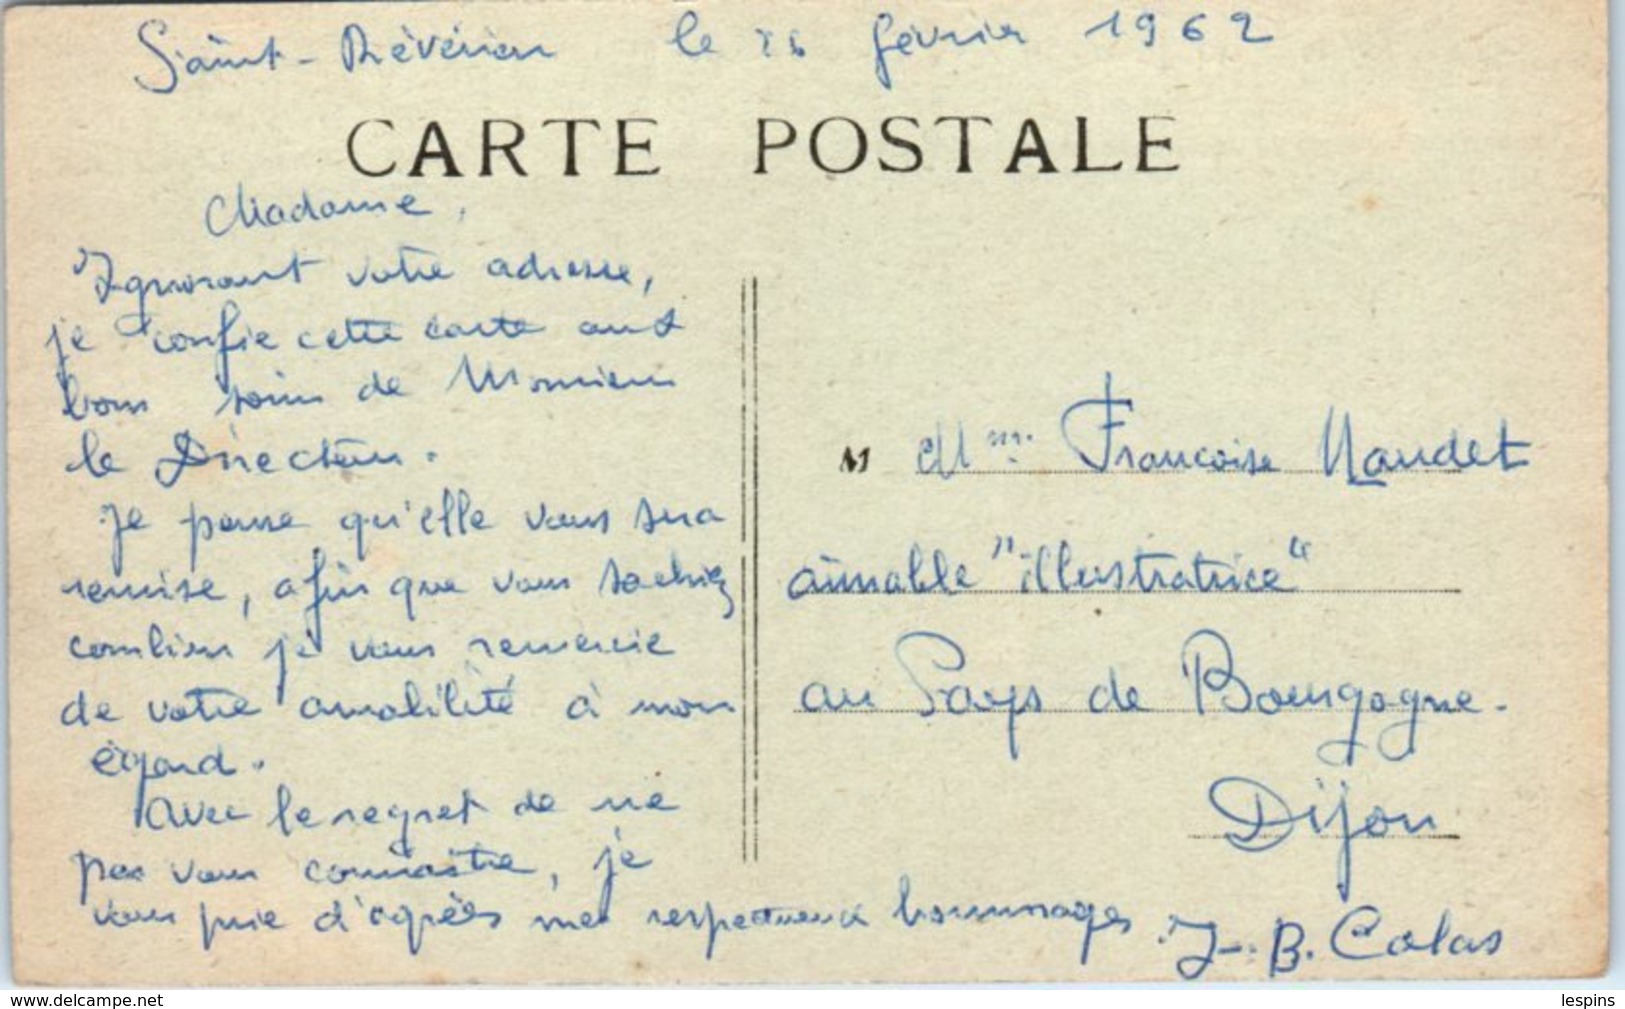 Saint-Révérien le février 1962
CARTE POSTALE
Madame,
Ignorant votre adresse,
je confie cette carte aux
bons soins de Monsieur
le Directeur.
Je pense qu'elle vous sera
remise, afin que vous sachiez
combien je vous remercie
de votre amabilité à mon
égard.
Avec le regret de ne
pas vous connaître, je
vous prie d'agréer mes respectueux hommages
J.-B. Colas
M Mme Françoise Naudet
aimable "illustratrice"
au Pays de Bourgogne.
Dijon
www.delcampe.net
lespins